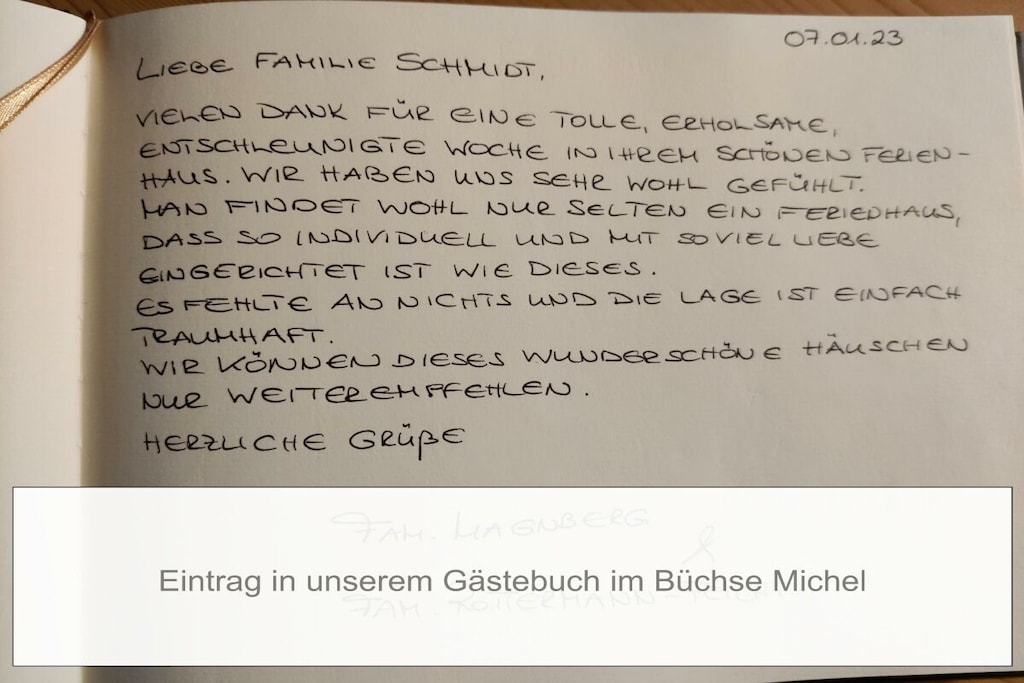 07.01.23
LIEBE FAMILIE SCHMIDT,
VIELEN DANK FÜR EINE TOLLE, ERHOLSAME,
ENTSCHLEUNIGTE WOCHE IN IHREM SCHÖNEN FERIEN-
HAUS. WIR HABEN UNS SEHR WOHL GEFÜHLT.
MAN FINDET WOHL NUR SELTEN EIN FERIENHAUS,
DASS SO INDIVIDUELL UND MIT SOVIEL LIEBE
EINGERICHTET IST WIE DIESES.
ES FEHLTE AN NICHTS UND DIE LAGE IST EINFACH
TRAUMHAFT.
WIR KÖNNEN DIESES WUNDERSCHÖNE HÄUSCHEN
NUR WEITEREMPFEHLEN.
HERZLICHE GRÜßE
FAM.
&
Eintrag in unserem Gästebuch im Büchse Michel
FAM.